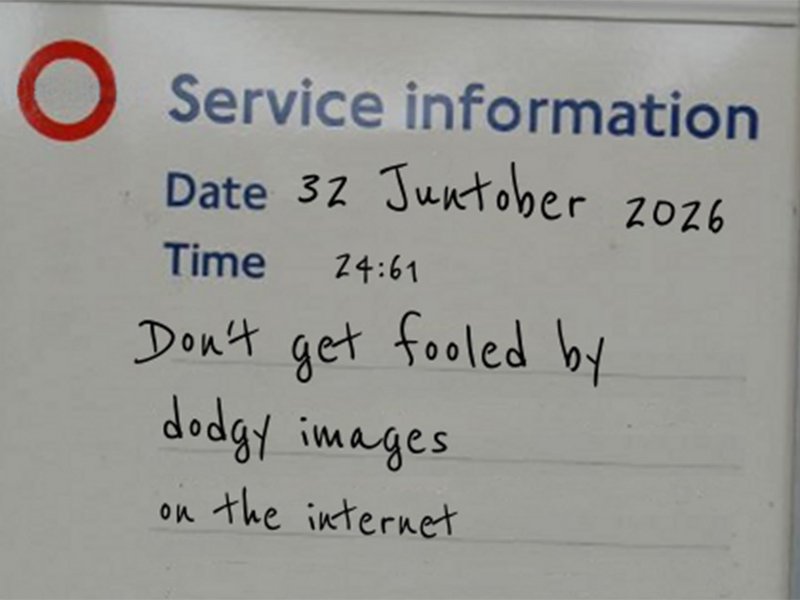 Service information
Date 32 Juntober 2026
Time 24:61
Don't get fooled by
dodgy images
on the internet